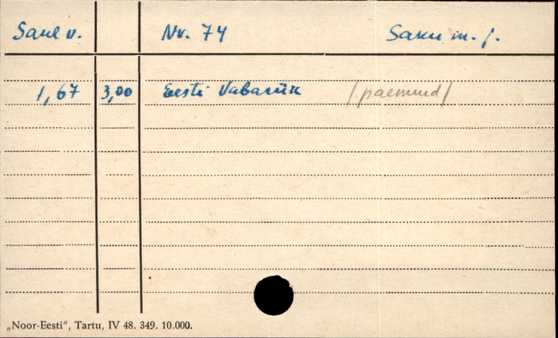 Saue v. Nr. 74 Saku m. j.
1,67 3,00 Eesti Vabariik /paemuud/
„Noor-Eesti", Tartu, IV 48. 349. 10.000.